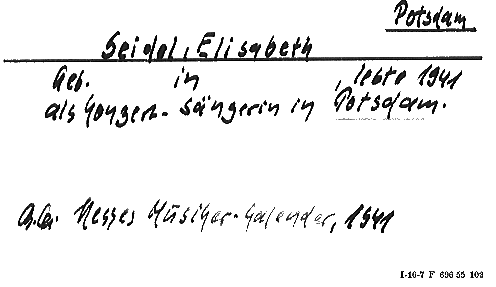 Potsdam
Seidel, Elisabeth
Geb. in , lebte 1941
als Konzert-Sängerin in Potsdam.
Hesses Musiker-Kalender, 1941
I-16-7 F 696 55 103